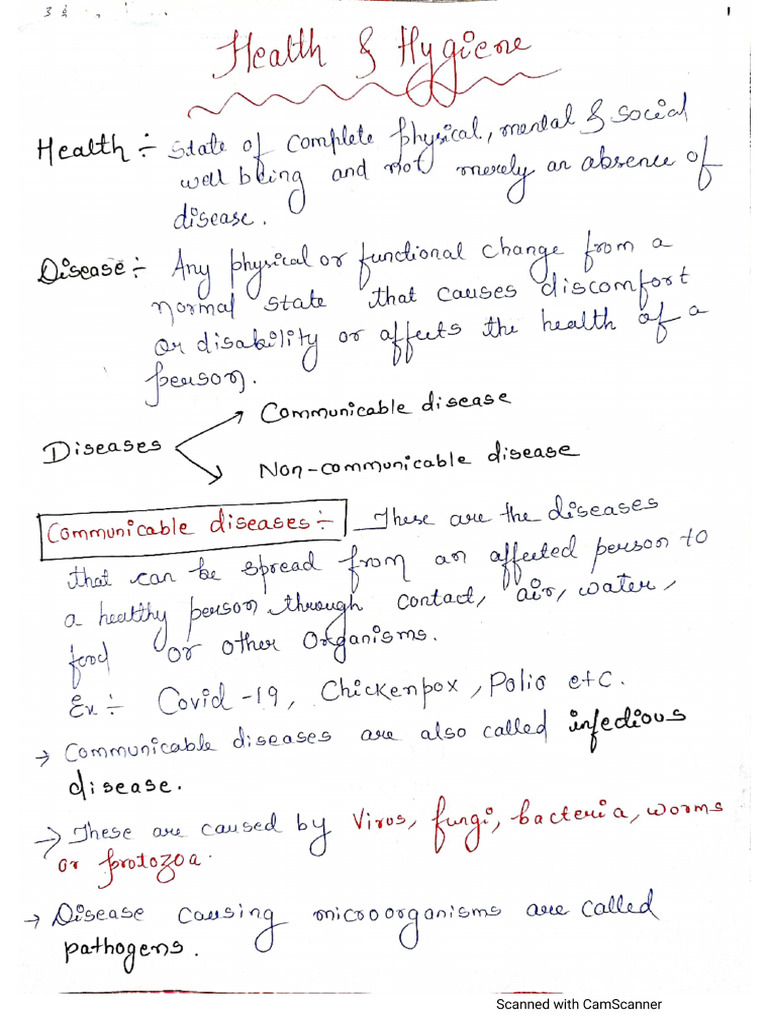 1
Health & Hygiene
Health ÷ State of complete physical, mental & social
well being and not merely an absence of
disease.
Disease ÷ Any physical or functional change from a
normal state that causes discomfort
or disability or affects the health of a
person.
Diseases
Communicable disease
Non-communicable disease
Communicable diseases ÷ These are the diseases
that can be spread from an affected person to
a healthy person through contact, air, water,
food or other organisms.
Ex ÷ Covid-19, Chickenpox, Polio etc.
→ Communicable diseases are also called infectious
disease.
→ These are caused by Virus, fungi, bacteria, worms
or protozoa.
→ Disease causing microorganisms are called
pathogens.
Scanned with CamScanner